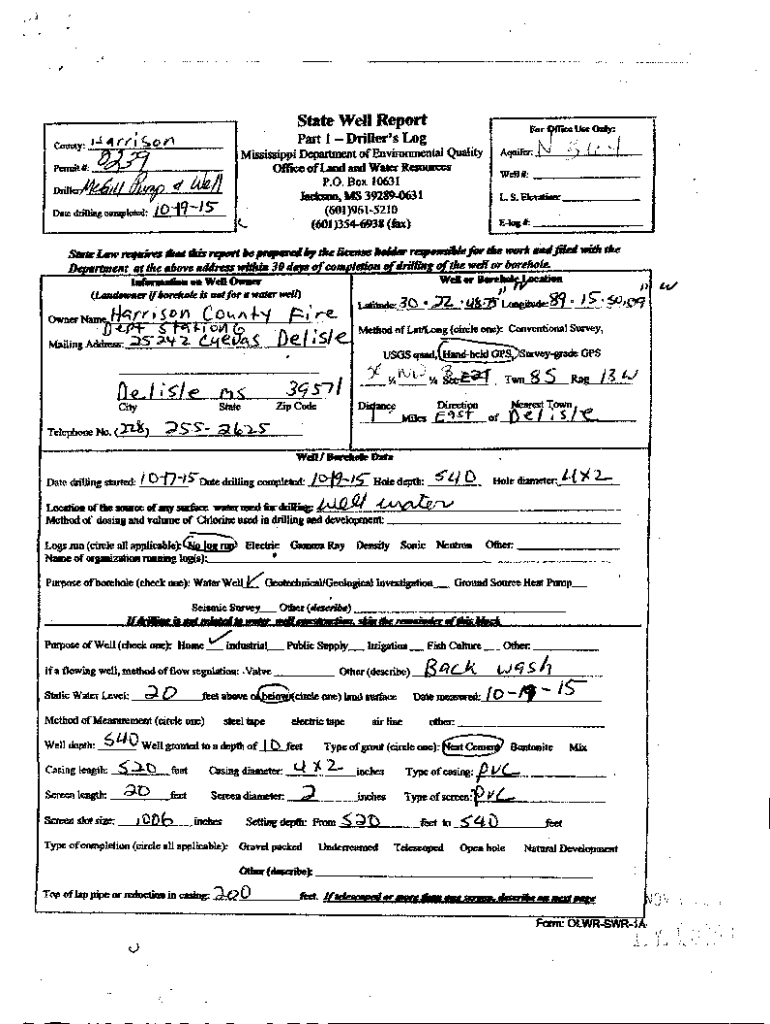 State Well Report
Part 1 – Driller's Log
Mississippi Department of Environmental Quality
Office of Land and Water Resources
P.O. Box 10631
Jackson, MS 39289-0631
(601)961-5210
(601)354-6938 (fax)
County: Harrison
Permit #: 0239
Driller: McGill Pump & Well
Date drilling completed: 10-19-15
For Office Use Only:
Aquifer:
Well #:
L. S. Elevation:
E-log #:
State Law requires that this report be prepared by the license holder responsible for the work and filed with the
Department at the above address within 30 days of completion of drilling of the well or borehole.
Information on Well Owner
(Landowner if borehole is not for a water well)
Owner Name Harrison County Fire
Dept Station 6
Mailing Address: 25242 Cuevas Delisle
Delisle ms 39571
City State Zip Code
Telephone No. (228) 255-2625
Well or Borehole Location
Latitude: 30 . 22 . 48.75 Longitude: 89 . 15 . 50,599 W
Method of Lat/Long (circle one): Conventional Survey,
USGS quad, Hand-held GPS, Survey-grade GPS
¼ NW ¼ Sec Twn 8S Rng 13W
Distance Direction Nearest Town
1 Miles East of Delisle
Well / Borehole Data
Date drilling started: 10-17-15 Date drilling completed: 10-19-15 Hole depth: 540 Hole diameter: 4x2
Location of the source of any surface water used for drilling: well water
Method of dosing and volume of Chlorine used in drilling and development:
Logs run (circle all applicable): No log run Electric Gamma Ray Density Sonic Neutron Other:
Name of organization running log(s):
Purpose of borehole (check one): Water Well ✓ Geotechnical/Geological Investigation Ground Source Heat Pump
Seismic Survey Other (describe)
If drilling is not related to water well construction, skip the remainder of this block
Purpose of Well (check one): Home ✓ Industrial Public Supply Irrigation Fish Culture Other:
If a flowing well, method of flow regulation: Valve Other (describe) Back wash
Static Water Level: 20 feet above or below (circle one) land surface Date measured: 10-19-15
Method of Measurement (circle one) steel tape electric tape air line other:
Well depth: 540 Well grouted to a depth of 10 feet Type of grout (circle one): Neat Cement Bentonite Mix
Casing length: 520 feet Casing diameter: 4x2 inches Type of casing: PVC
Screen length: 20 feet Screen diameter: 2 inches Type of screen: PVC
Screen slot size: 1006 inches Setting depth: From 520 feet to 540 feet
Type of completion (circle all applicable): Gravel packed Underreamed Telescoped Open hole Natural Development
Other (describe):
Top of lap pipe or reduction in casing: 200 feet. If telescoped or more than one screen, describe on next page
Form: OLWR-SWR-1A